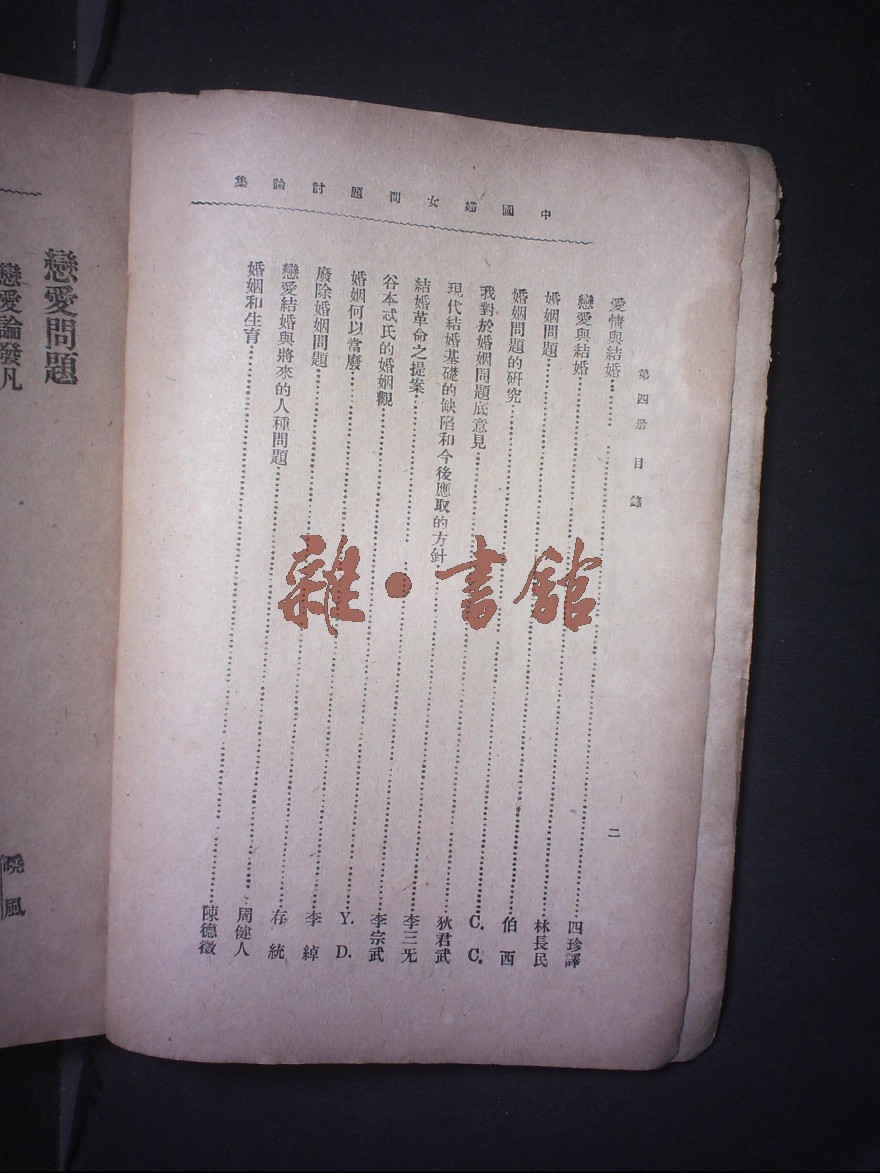 中國婦女問題討論集
第四册目錄　二
愛情與結婚……四珍譯
戀愛與結婚……林長民
婚姻問題……伯西
婚姻問題的研究……C. C.
我對於婚姻問題底意見……狄君武
現代結婚基礎的缺陷和今後應取的方針……李三旡
結婚革命之提案……李宗武
谷本忒氏的婚姻觀……Y. D.
婚姻何以當廢……李綽
廢除婚姻問題……存統
戀愛結婚與將來的人種問題……周健人
婚姻和生育……陳德徵
戀愛問題
戀愛論發凡　曉風
雜·書館